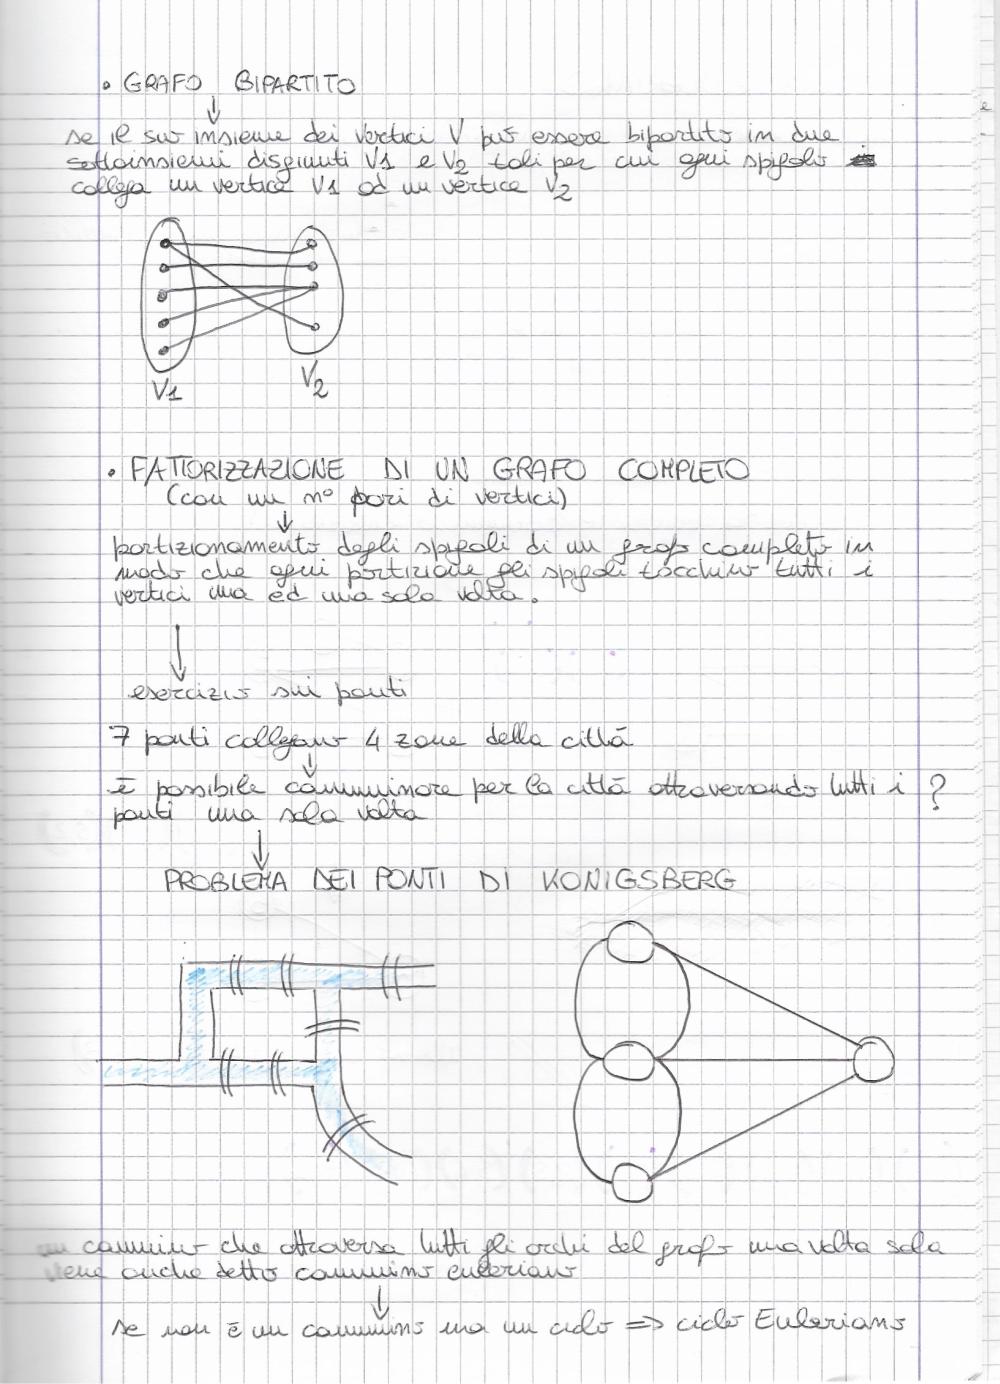 • GRAFO BIPARTITO
↓
se il suo insieme dei vertici V può essere bipartito in due
sottoinsiemi disgiunti V1 e V2 tali per cui ogni spigolo
collega un vertice V1 ad un vertice V2
V1 V2
• FATTORIZZAZIONE DI UN GRAFO COMPLETO
(con un n° pari di vertici)
↓
partizionamento degli spigoli di un grafo completo in
modo che ogni partizione gli spigoli tocchino tutti i
vertici una ed una sola volta.
↓
esercizio sui ponti
7 ponti collegano 4 zone della città
↓
è possibile camminare per la città attraversando tutti i ?
ponti una sola volta
↓
PROBLEMA DEI PONTI DI KONIGSBERG
un cammino che attraversa tutti gli archi del grafo una volta sola
viene anche detto cammino euleriano
↓
se non è un cammino ma un ciclo => ciclo Euleriano